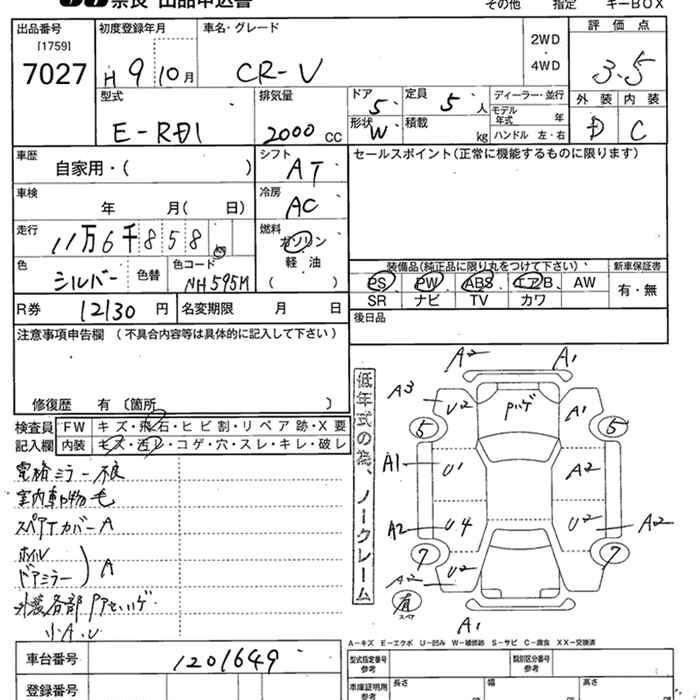 奈良 出品申込書
その他 指定 キーBOX
出品番号
[1759]
7027
初度登録年月
H 9 10 月
車名・グレード
CR-V
2WD
・
4WD
評価点
3.5
外装 内装
D C
型式
E-RD1
排気量
2000 cc
ドア 5
形状 W
定員 5 人
積載 kg
ディーラー・並行
モデル年式 年
ハンドル 左・右
車歴
自家用・( )
シフト
AT
セールスポイント(正常に機能するものに限ります)
車検
年 月( 日)
冷房
AC
走行
11万6千858
燃料
ガソリン
軽油
( )
色
シルバー
色替
色コード
NH595M
装備品(純正品に限り丸をつけて下さい)
PS PW ABS エアB AW
SR ナビ TV カワ
新車保証書
有・無
R券 12130 円
名変期限 月 日
後日品
注意事項申告欄 (不具合内容等は具体的に記入して下さい)
修復歴 有〔箇所 〕
検査員記入欄
FW キズ・飛石・ヒビ割・リペア跡・X要
内装 キズ・汚レ・コゲ・穴・スレ・キレ・破レ
電格ミラー不良
室内動物毛
スペアTカバーA
ホイル
ドアミラー
A
外装各部
小A.U
低年式の為、ノークレーム
A2 A1
A3 U2 A1
5 5
A1 U1 A2
A2 U4 U2 A2
7 7
A2 U2
有
スペア
A1
A-キズ E-エクボ U-凹み W-補修跡 S-サビ C-腐食 XX-交換済
車台番号 1201649
登録番号
型式指定番号
参考
類別区分番号
参考
車庫証明用
参考
長さ 幅 高さ